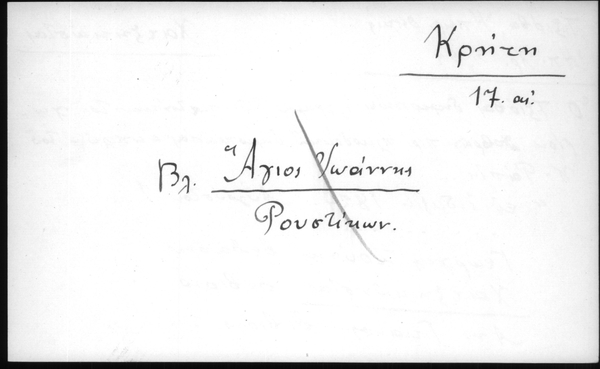 Κρήτη
17. αἰ.
Βλ. Ἅγιος Ἰωάννης
Ρουστίκων.